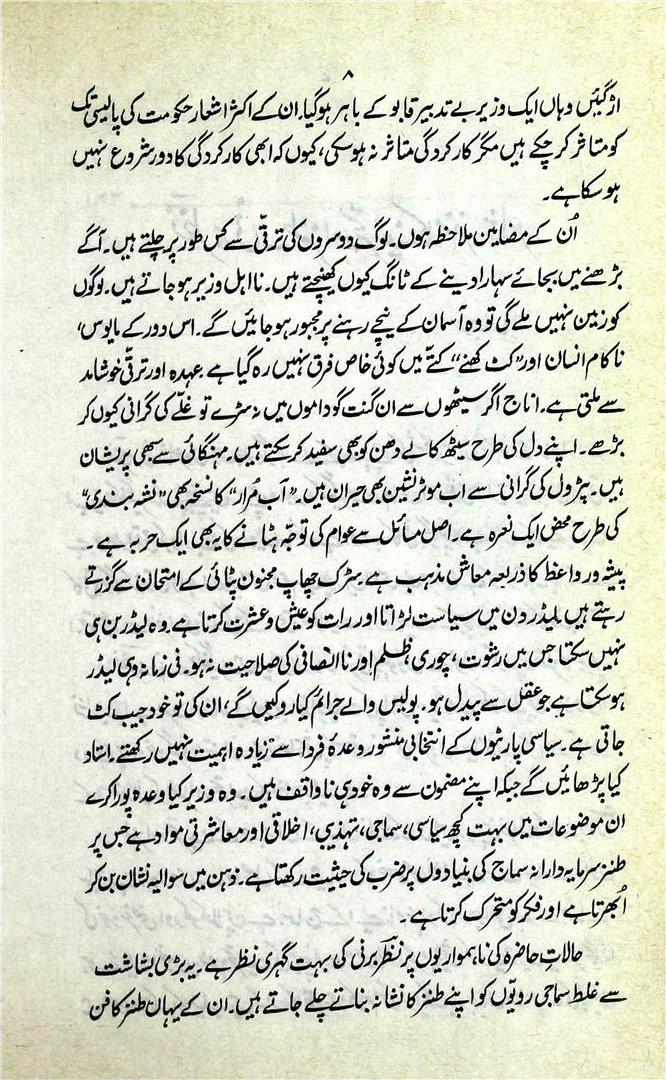 ۸
اڑ گئیں وہاں ایک وزیر بے تدبیر قابو کے باہر ہو گیا۔ ان کے اکثر اشعار حکومت کی پالیسی تک
کو متاثر کر چکے ہیں مگر کارکردگی متاثر نہ ہو سکی، کیوں کہ ابھی کارکردگی کا دور شروع نہیں
ہو سکا ہے۔
اُن کے مضامین ملاحظہ ہوں۔ لوگ دوسروں کی ترقّی سے کس طور پر جلتے ہیں۔ آگے
بڑھنے میں بجائے سہارا دینے کے ٹانگ کیوں کھینچتے ہیں۔ نااہل وزیر ہو جاتے ہیں۔ لوگوں
کو زمین نہیں ملے گی تو وہ آسمان کے نیچے رہنے پر مجبور ہو جائیں گے۔ اس دور کے مایوس،
ناکام انسان اور "کٹ کھنے" کتّے میں کوئی خاص فرق نہیں رہ گیا ہے۔ عہدہ اور ترقّی خوشامد
سے ملتی ہے۔ اناج اگر سیٹھوں سے ان گنت گوداموں میں نہ سڑے تو غلّے کی گرانی کیوں کر
بڑھے۔ اپنے دل کی طرح سیٹھ کالے دھن کو بھی سفید کر سکتے ہیں۔ مہنگائی سے سبھی پریشان
ہیں۔ پٹرول کی گرانی سے اب موٹر نشین بھی حیران ہیں۔ "آب مُرار" کا نسخہ بھی "نشہ بندی"
کی طرح محض ایک نعرہ ہے۔ اصل مسائل سے عوام کی توجّہ ہٹانے کا یہ بھی ایک حربہ ہے۔
پیشہ ور واعظ کا ذریعہ معاش مذہب ہے۔ سڑک چھاپ مجنون پٹائی کے امتحان سے گزرتے
رہتے ہیں۔ لیڈر دن میں سیاست لڑاتا اور رات کو عیش و عشرت کرتا ہے۔ وہ لیڈر بن ہی
نہیں سکتا جس میں رشوت، چوری، ظلم اور ناانصافی کی صلاحیت نہ ہو۔ فی زمانہ وہی لیڈر
ہو سکتا ہے جو عقل سے پیدل ہو۔ پولیس والے جرائم کیا روکیں گے، ان کی تو خود جیب کٹ
جاتی ہے۔ سیاسی پارٹیوں کے انتخابی منشور وعدۂ فردا سے زیادہ اہمیت نہیں رکھتے۔ استاد
کیا پڑھائیں گے جبکہ اپنے مضمون سے وہ خود ہی ناواقف ہیں۔ وہ وزیر کیا وعدہ پورا کرے
ان موضوعات میں بہت کچھ سیاسی، سماجی، تہذیبی، اخلاقی اور معاشرتی مواد ہے جس پر
طنز سرمایہ دارانہ سماج کی بنیادوں پر ضرب کی حیثیت رکھتا ہے۔ ذہن میں سوالیہ نشان بن کر
اُبھرتا ہے اور فکر کو متحرک کرتا ہے۔
حالاتِ حاضرہ کی ناہمواریوں پر نظر برنی کی بہت گہری نظر ہے۔ یہ بڑی بشاشت
سے غلط سماجی رویّوں کو اپنے طنز کا نشانہ بناتے چلے جاتے ہیں۔ ان کے یہاں طنز کا فن